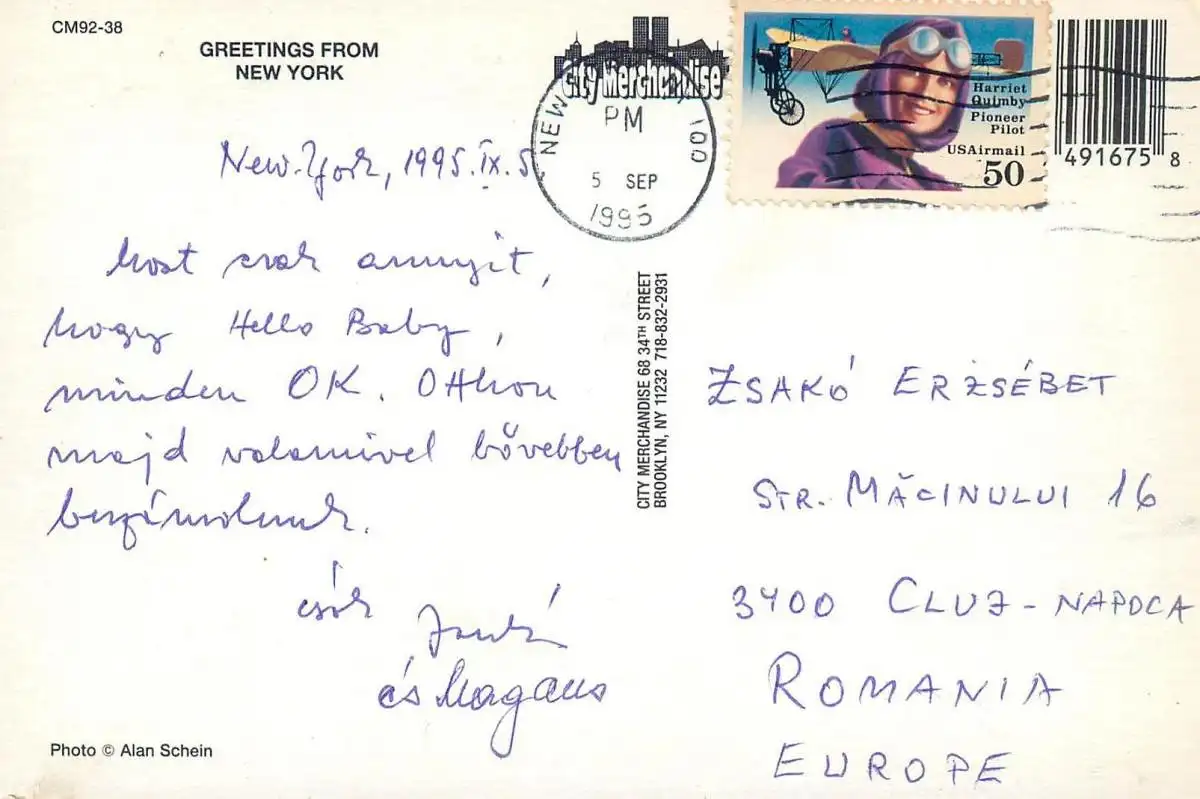 CM92-38
GREETINGS FROM
NEW YORK
City Merchandise
NEW
100
PM
5 SEP
1995
Harriet
Quimby
Pioneer
Pilot
USAirmail
50
491675 8
New-York, 1995.IX.5.
Most csak annyit,
hogy Hello Baby,
minden OK. Otthon
majd valamivel bővebben
beszámolunk.
csók
és
CITY MERCHANDISE 68 34TH STREET
BROOKLYN, NY 11232 718-832-2931
ZSAKÓ ERZSÉBET
STR. MĂCINULUI 16
3400 CLUJ-NAPOCA
ROMANIA
EUROPE
Photo © Alan Schein